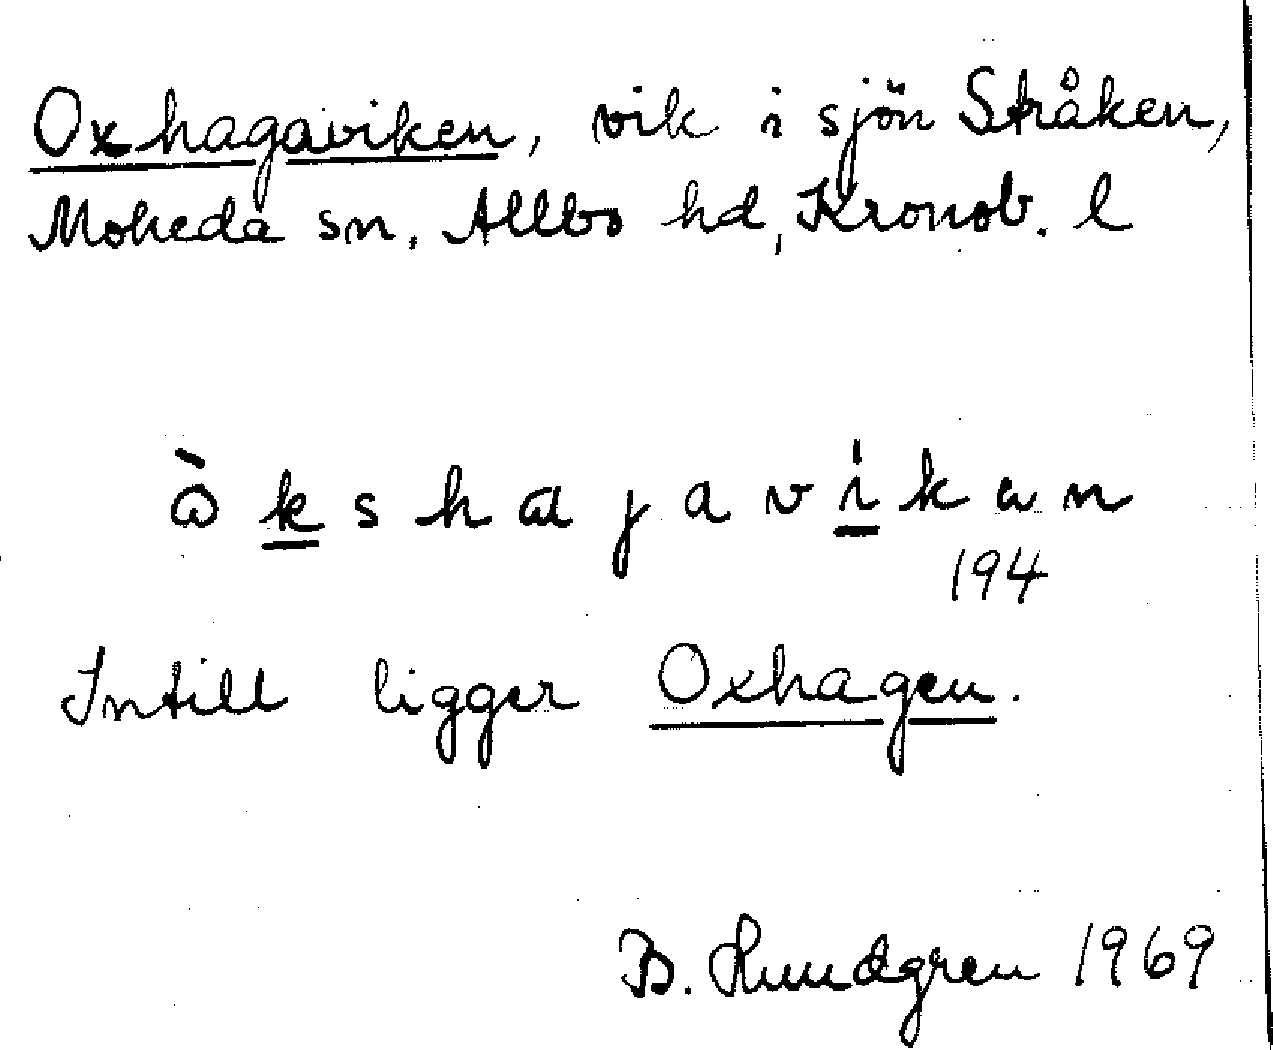 Oxhagaviken, vik i sjön Stråken,
Moheda sn, Allbo hd, Kronob. l
194
Intill ligger Oxhagen.
B. Lundgren 1969